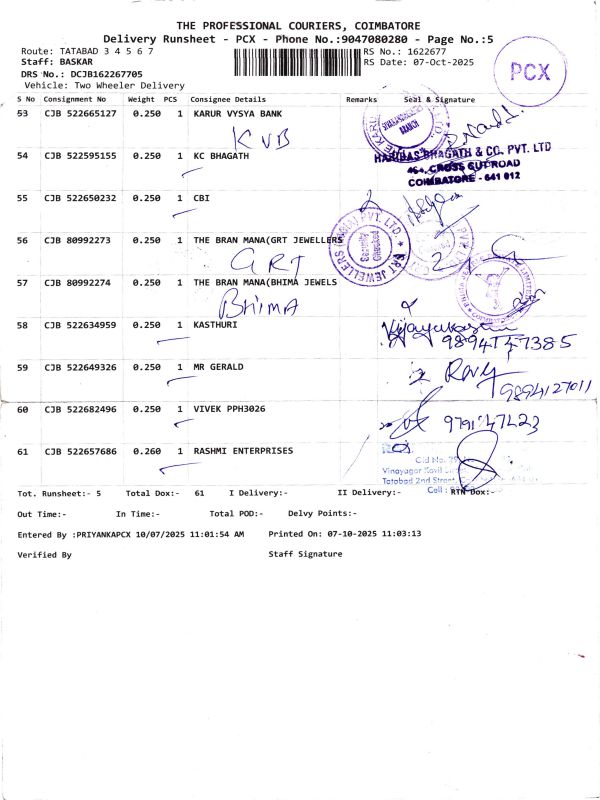 THE PROFESSIONAL COURIERS, COIMBATORE
Delivery Runsheet - PCX - Phone No.:9047080280 - Page No.:5
Route: TATABAD 3 4 5 6 7 RS No.: 1622677
Staff: BASKAR RS Date: 07-Oct-2025
DRS No.: DCJB162267705
Vehicle: Two Wheeler Delivery
PCX
S No Consignment No Weight PCS Consignee Details Remarks Seal & Signature
53 CJB 522665127 0.250 1 KARUR VYSYA BANK
KVB
54 CJB 522595155 0.250 1 KC BHAGATH
HARIDAS BHAGATH & CO. PVT. LTD
464, CROSS CUT ROAD
COIMBATORE - 641 012
55 CJB 522650232 0.250 1 CBI
56 CJB 80992273 0.250 1 THE BRAN MANA(GRT JEWELLERS
GRT
GRT JEWELLERS (INDIA) PVT. LTD.
Security Checked
57 CJB 80992274 0.250 1 THE BRAN MANA(BHIMA JEWELS
BHIMA
58 CJB 522634959 0.250 1 KASTHURI
9894747385
59 CJB 522649326 0.250 1 MR GERALD
9894127011
60 CJB 522682496 0.250 1 VIVEK PPH3026
61 CJB 522657686 0.260 1 RASHMI ENTERPRISES
Old No.
Vinayagar Kovil
Tatabad 2nd Street,
Cell :
Tot. Runsheet:- 5 Total Dox:- 61 I Delivery:- II Delivery:- RTN Dox:-
Out Time:- In Time:- Total POD:- Delvy Points:-
Entered By :PRIYANKAPCX 10/07/2025 11:01:54 AM Printed On: 07-10-2025 11:03:13
Verified By Staff Signature